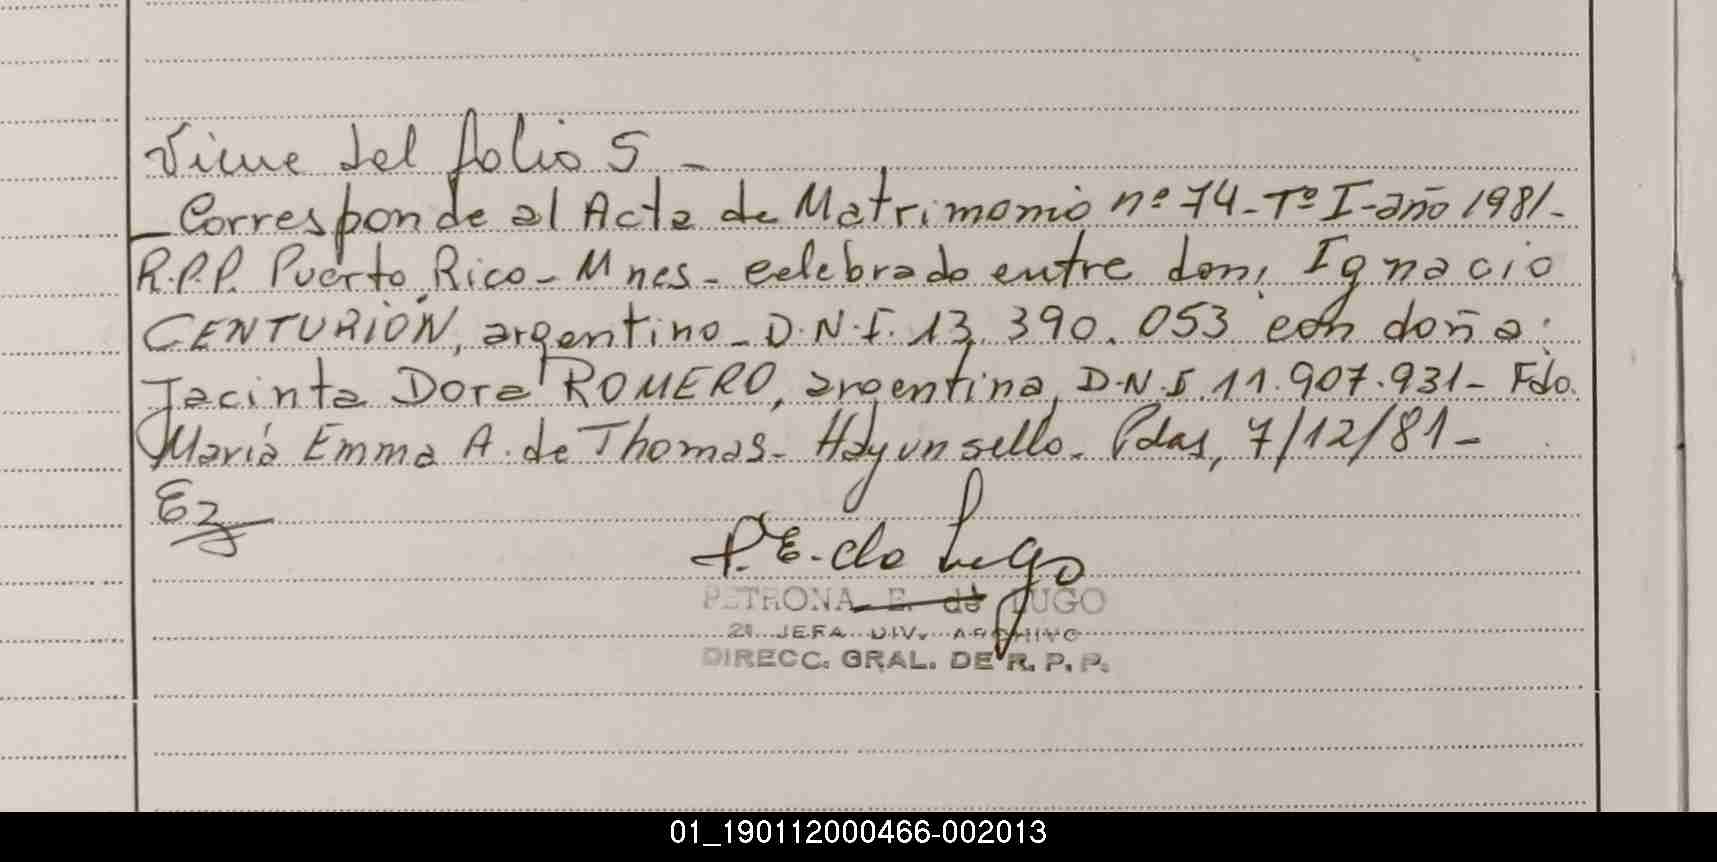 Viene del folio 5 -
- Corresponde al Acta de Matrimonio nº 74 - Tº I - año 1981 -
R.P.P. Puerto Rico - Mnes - celebrado entre don, Ignacio
CENTURIÓN, argentino - D.N.I. 13.390.053 con doña:
Jacinta Dora ROMERO, argentina, D.N.I. 11.907.931 - Fdo.
María Emma A. de Thomas - Hay un sello - Pdas, 7/12/81 -
Ez
P.E. de Lugo
PETRONA E. de LUGO
JEFA DIV. ARCHIVO
DIRECC. GRAL. DE R. P. P.
01_190112000466-002013